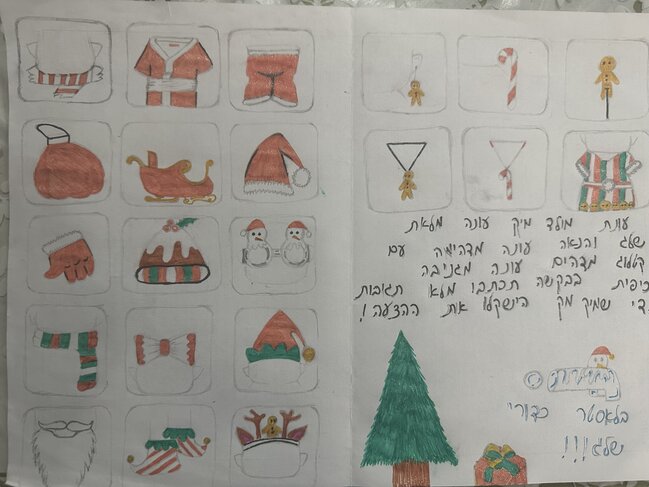 עונת מולד מיק עונה מלאת
שלג והנאה עונה מדהימה עם
קטלוג מדהים עונה מגניבה
כיפית בבקשה תכתבו מלא תגובות
כדי שמיק מק הישקלו את ההצעה!
בלאסטר כדורי
שלג!!!